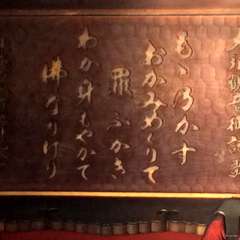 もゝのかす
おかみめくりて
罪ふかき
わか身もやかて
佛なりけり